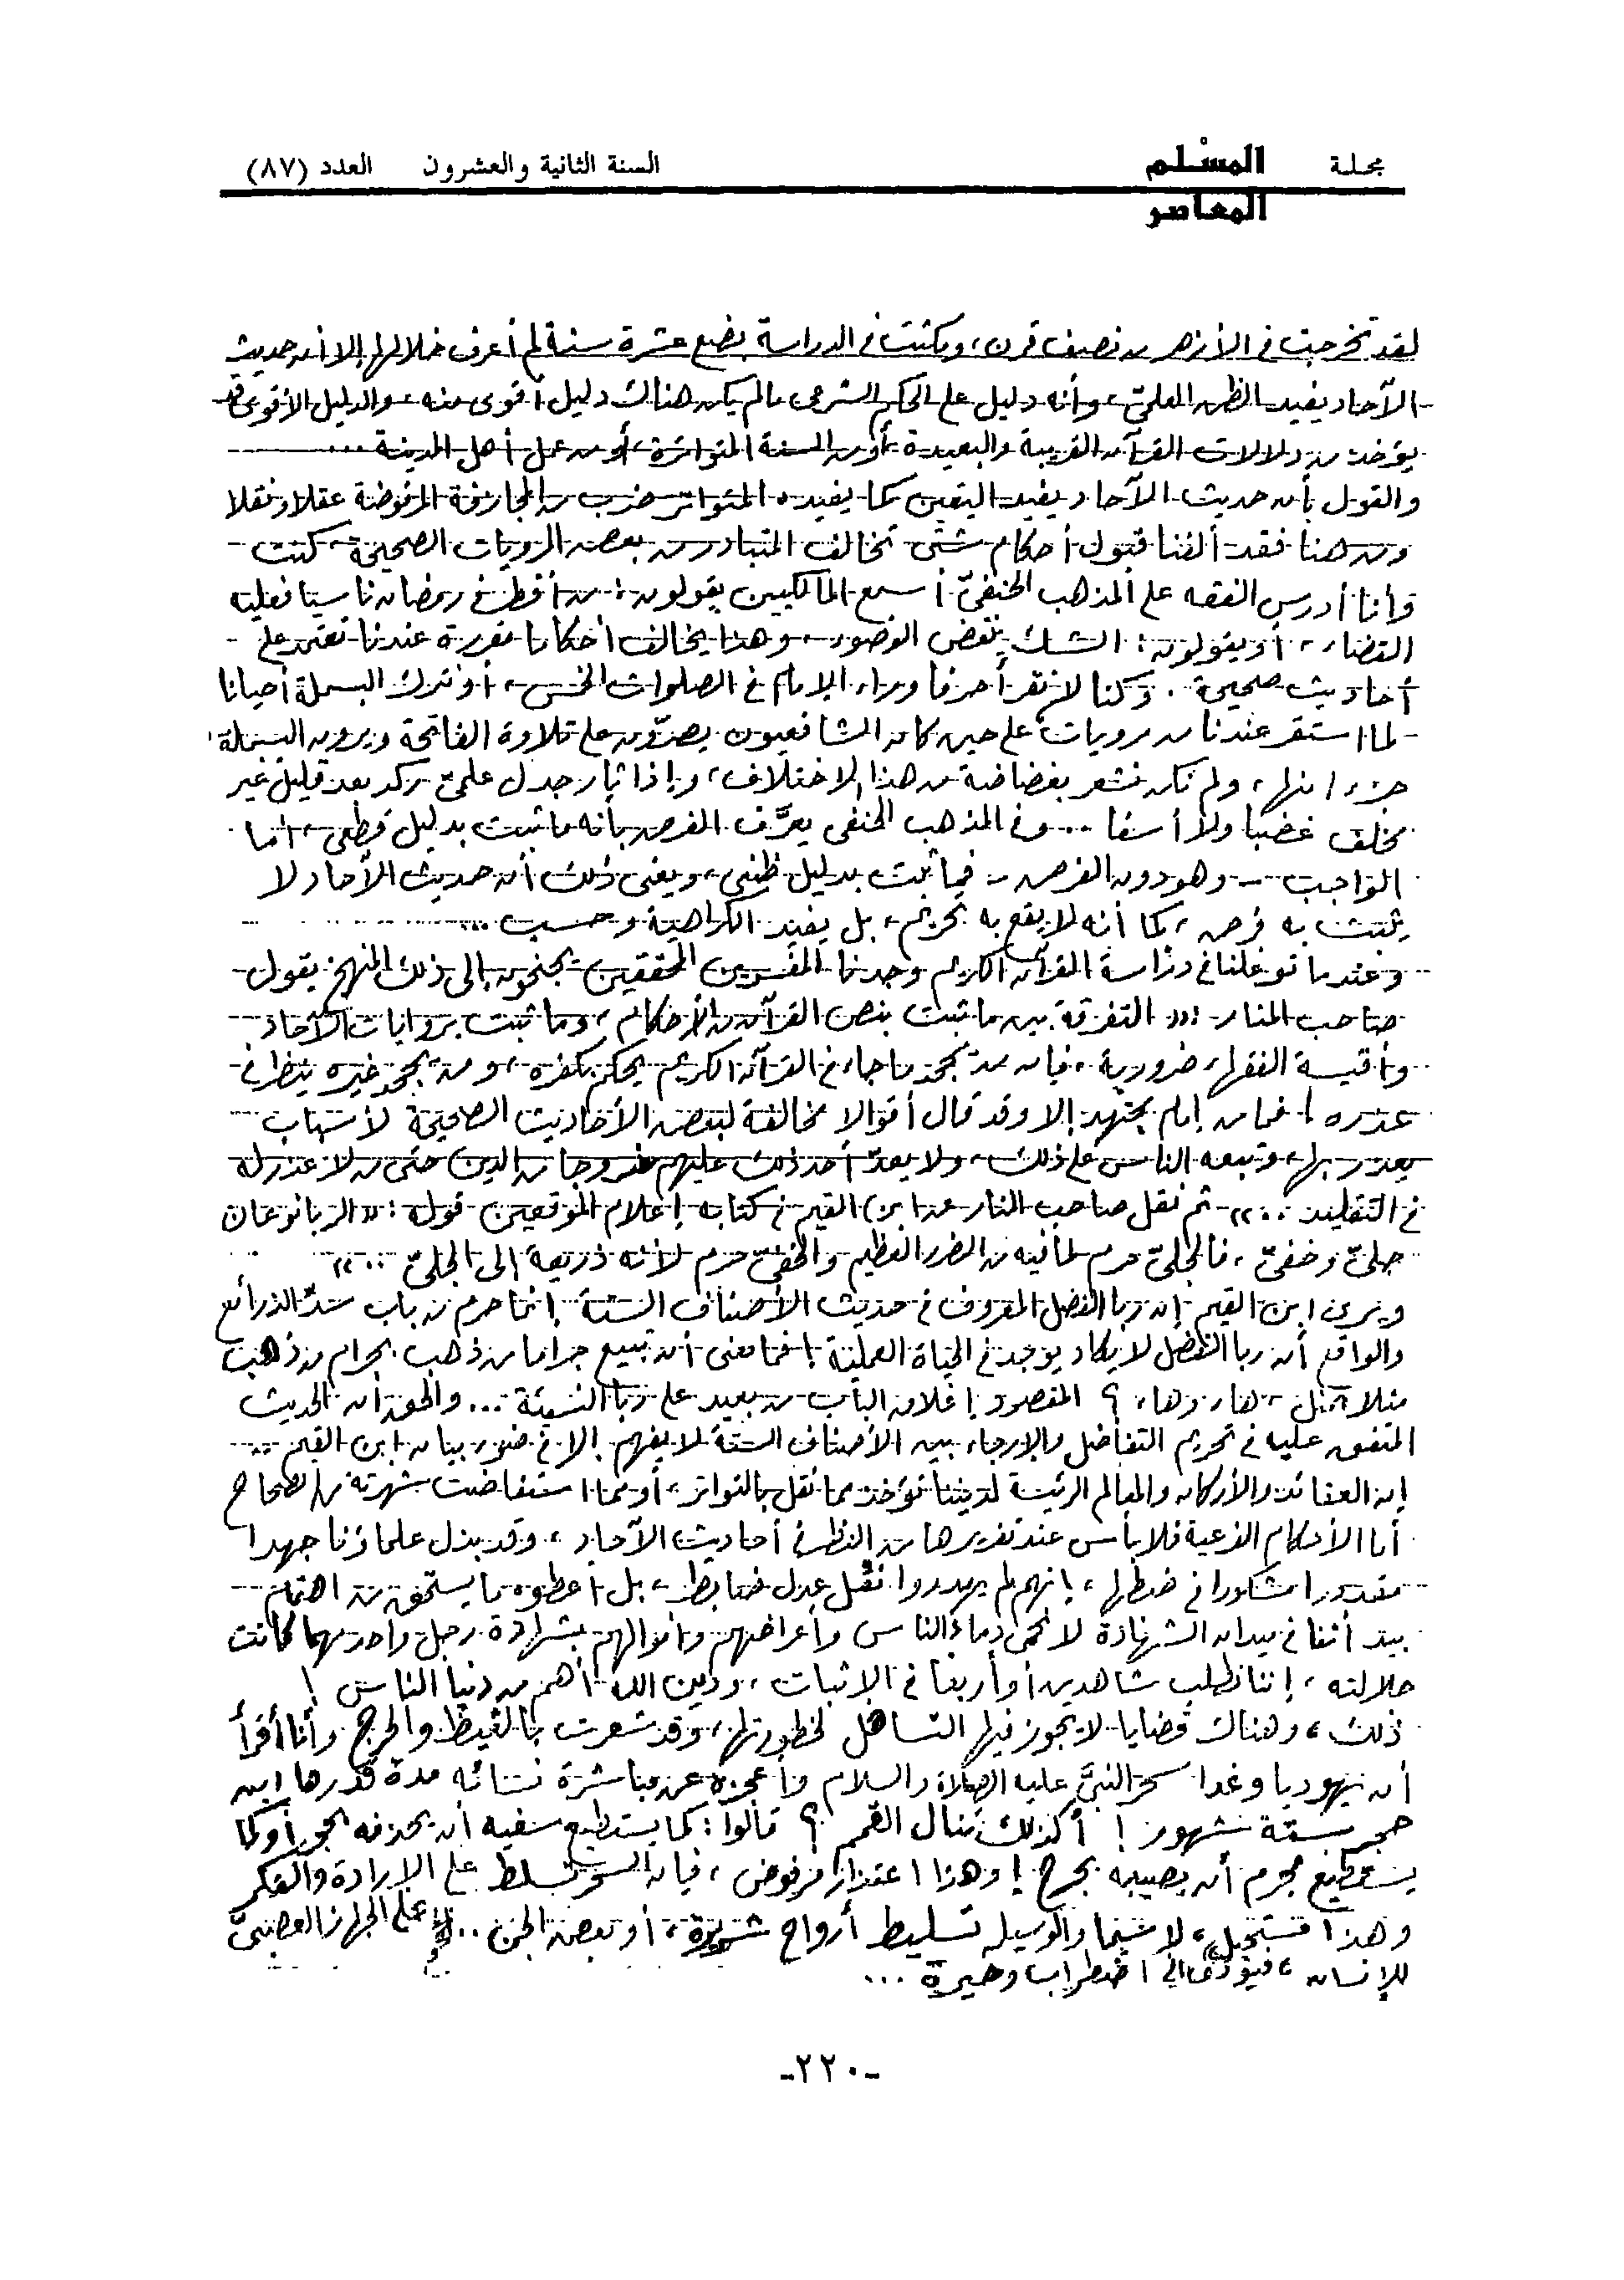 مجلة المسْلم المعاصر السنة الثانية والعشرون العدد (٨٧)
لقد تخرجت فى الأزهر من نصف قرن، ومكثت فى الدراسة بضع عشرة سنة لم أعرف خلالها إلا أن حديث
الآحاد يفيد الظن العلمىّ، وأنه دليل على الحكم الشرعى مالم يكن هناك دليل أقوى منه، والدليل الأقوى قد
يؤخذ من دلالات القرآن القريبة والبعيدة أو من السنة المتواترة، أو من عمل أهل المدينة ...
والقول بأن حديث الآحاد يفيد اليقين كما يفيده المتواتر ضرب من المجازفة المرفوضة عقلا ونقلا
ومن هنا فقد ألفنا قبول أحكام شتى تخالف المتبادر من بعض المرويات الصحيحة، كنت
وأنا أدرس الفقه على المذهب الحنفىّ أسمع المالكيين يقولون: من أفطر فى رمضان ناسيا فعليه
القضاء، أو يقولون: الشك ينقض الوضوء، وهذا يخالف أحكاما مقررة عندنا تعتمد على
أحاديث صحيحة. وكنا لا نقرأ حرفا وراء الإمام فى الصلوات الخمس، أو نترك البسملة أحيانا
لما استقر عندنا من مرويات على حين كان الشافعيون يصرّون على تلاوة الفاتحة ويرون البسملة
جزءا منها، ولم نكن نشعر بغضاضة من هذا الاختلاف، وإذا ثار جدل علمىّ ركد بعد قليل غير
مخلف غضبا ولا أسفا ... وفى المذهب الحنفى يعرَّف الفرض بأنه ما ثبت بدليل قطعى، أما
الواجب - وهو دون الفرض - فما ثبت بدليل ظنى، ومعنى ذلك أن حديث الآحاد لا
يثبت به فرض، كما أنه لا يقع به تحريم، بل يفيد الكراهية وحسب ...
وعندما توغلنا فى دراسة القرآن الكريم وجدنا المفسرين المحققين يجنحون إلى ذلك المنهج يقول
صاحب المنار: «التفرقة بين ما ثبت بنص القرآن من الأحكام، وما ثبت بروايات الآحاد
وأقيسة الفقهاء ضرورية، فإن من يجحد ما جاء فى القرآن الكريم يحكم بكفره، ومن يجحد غيره ينظر فى
عذره! فما من إمام مجتهد إلا وقد قال أقوالا مخالفة لبعض الأحاديث الصحيحة لأسباب
يعذر بها، وتبعه الناس على ذلك، ولا يعدّ أحد ذلك عليهم خروجا من الدين حتى من لا عذر له
فى التقليد ..» ثم نقل صاحب المنار عن ابن القيم فى كتابه إعلام الموقعين قوله: «الربا نوعان
جلىّ وخفىّ، فالجلىّ حرم لما فيه من الضرر العظيم والخفىّ حرم لأنه ذريعة إلى الجلىّ ..»
ويرى ابن القيم إن ربا الفضل المعروف فى حديث الأصناف الستة إنما حرم من باب سدّ الذرائع
والواقع أن ربا الفضل لا يكاد يوجد فى الحياة العملية! فما معنى أن تبيع جراما من ذهب بجرام من ذهب
مثلا بمثل، هاء وهاء؟ المقصود إغلاق الباب من بعيد على ربا النسيئة ... والحق أن الحديث
المتفق عليه فى تحريم التفاضل والإرجاء بين الأصناف الستة لا يفهم إلا فى ضوء بيان ابن القيم ..
إن العقائد والأركان والمعالم الرئيسة لديننا تؤخذ مما نقل بالتواتر، أو مما استفاضت شهرته من الصحاح
أما الأحكام الفرعية فلا بأس عند تقريرها من النظر فى أحاديث الآحاد، وقد بذل علماؤنا جهدا
مقدورا مشكورا فى ضبطها، إنهم لم يهدروا نقل عدل ضابط، بل أعطوه ما يستحق من اهتمام
بيد أننا فى ميدان الشهادة لا نحمى دماء الناس وأعراضهم وأموالهم بشهادة رجل واحد مهما كانت
جلالته، إننا نطلب شاهدين أو أربعا فى الإثبات، ودين الله أهم من دنيا الناس!
ذلك، وهناك قضايا لا يجوز فيها التساهل لخطورتها، وقد شعرت بالغيظ والحرج وأنا أقرأ
أن يهوديا وغدا سحر النبىَّ عليه الصلاة والسلام وأعجزه عن مباشرة نسائه مدة قدرها ابن
حجر بستة شهور! أكذلك تنال القمم؟ قالوا: كما يستطيع سفيه أن يحذفه بحجر أو كما
يستطيع مجرم أن يصيبه بجرح! وهذا اعتذار مرفوض، فإن السحر تسلط على الإرادة والفكر
وهذا مستحيل، لا سيما والوسيلة تسليط أرواح شريرة، أو بعض الجن .. على الجهاز العصبىّ
للإنسان، فيؤدى إلى اضطراب وحيرة ...
-٢٢٠-